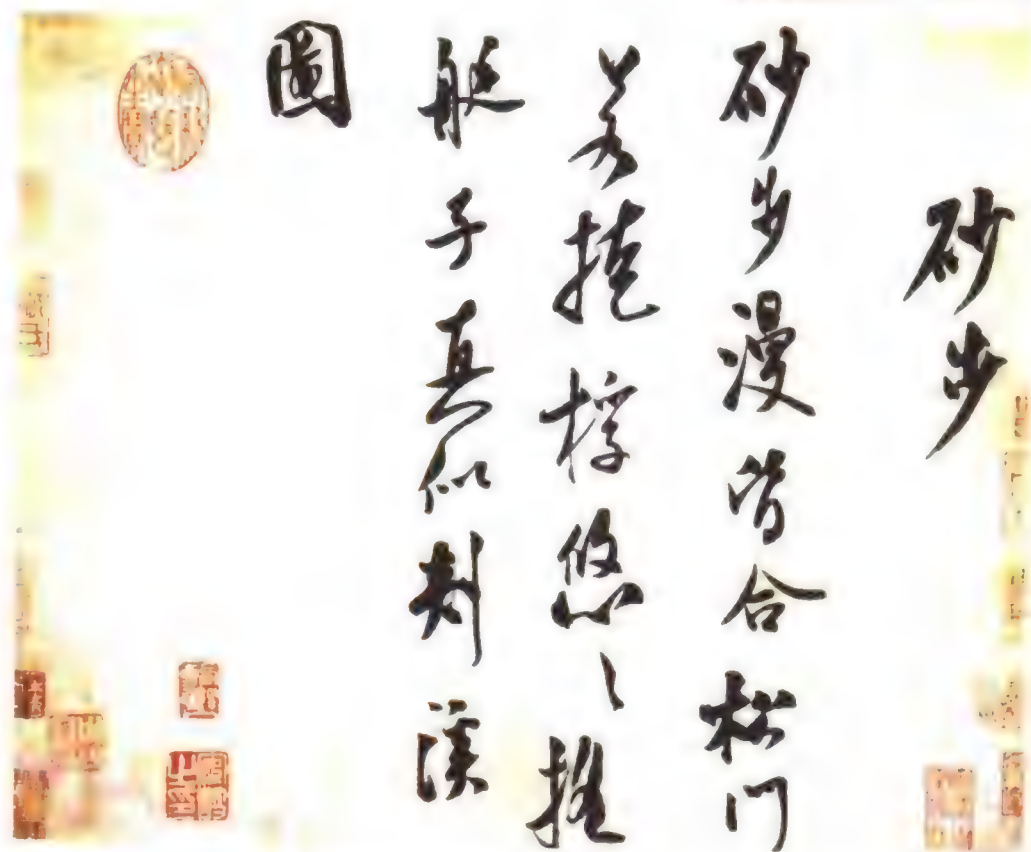 砂步
砂步漫皆合松門
若掩桴悠〻搖
艇子真似剡溪
圖